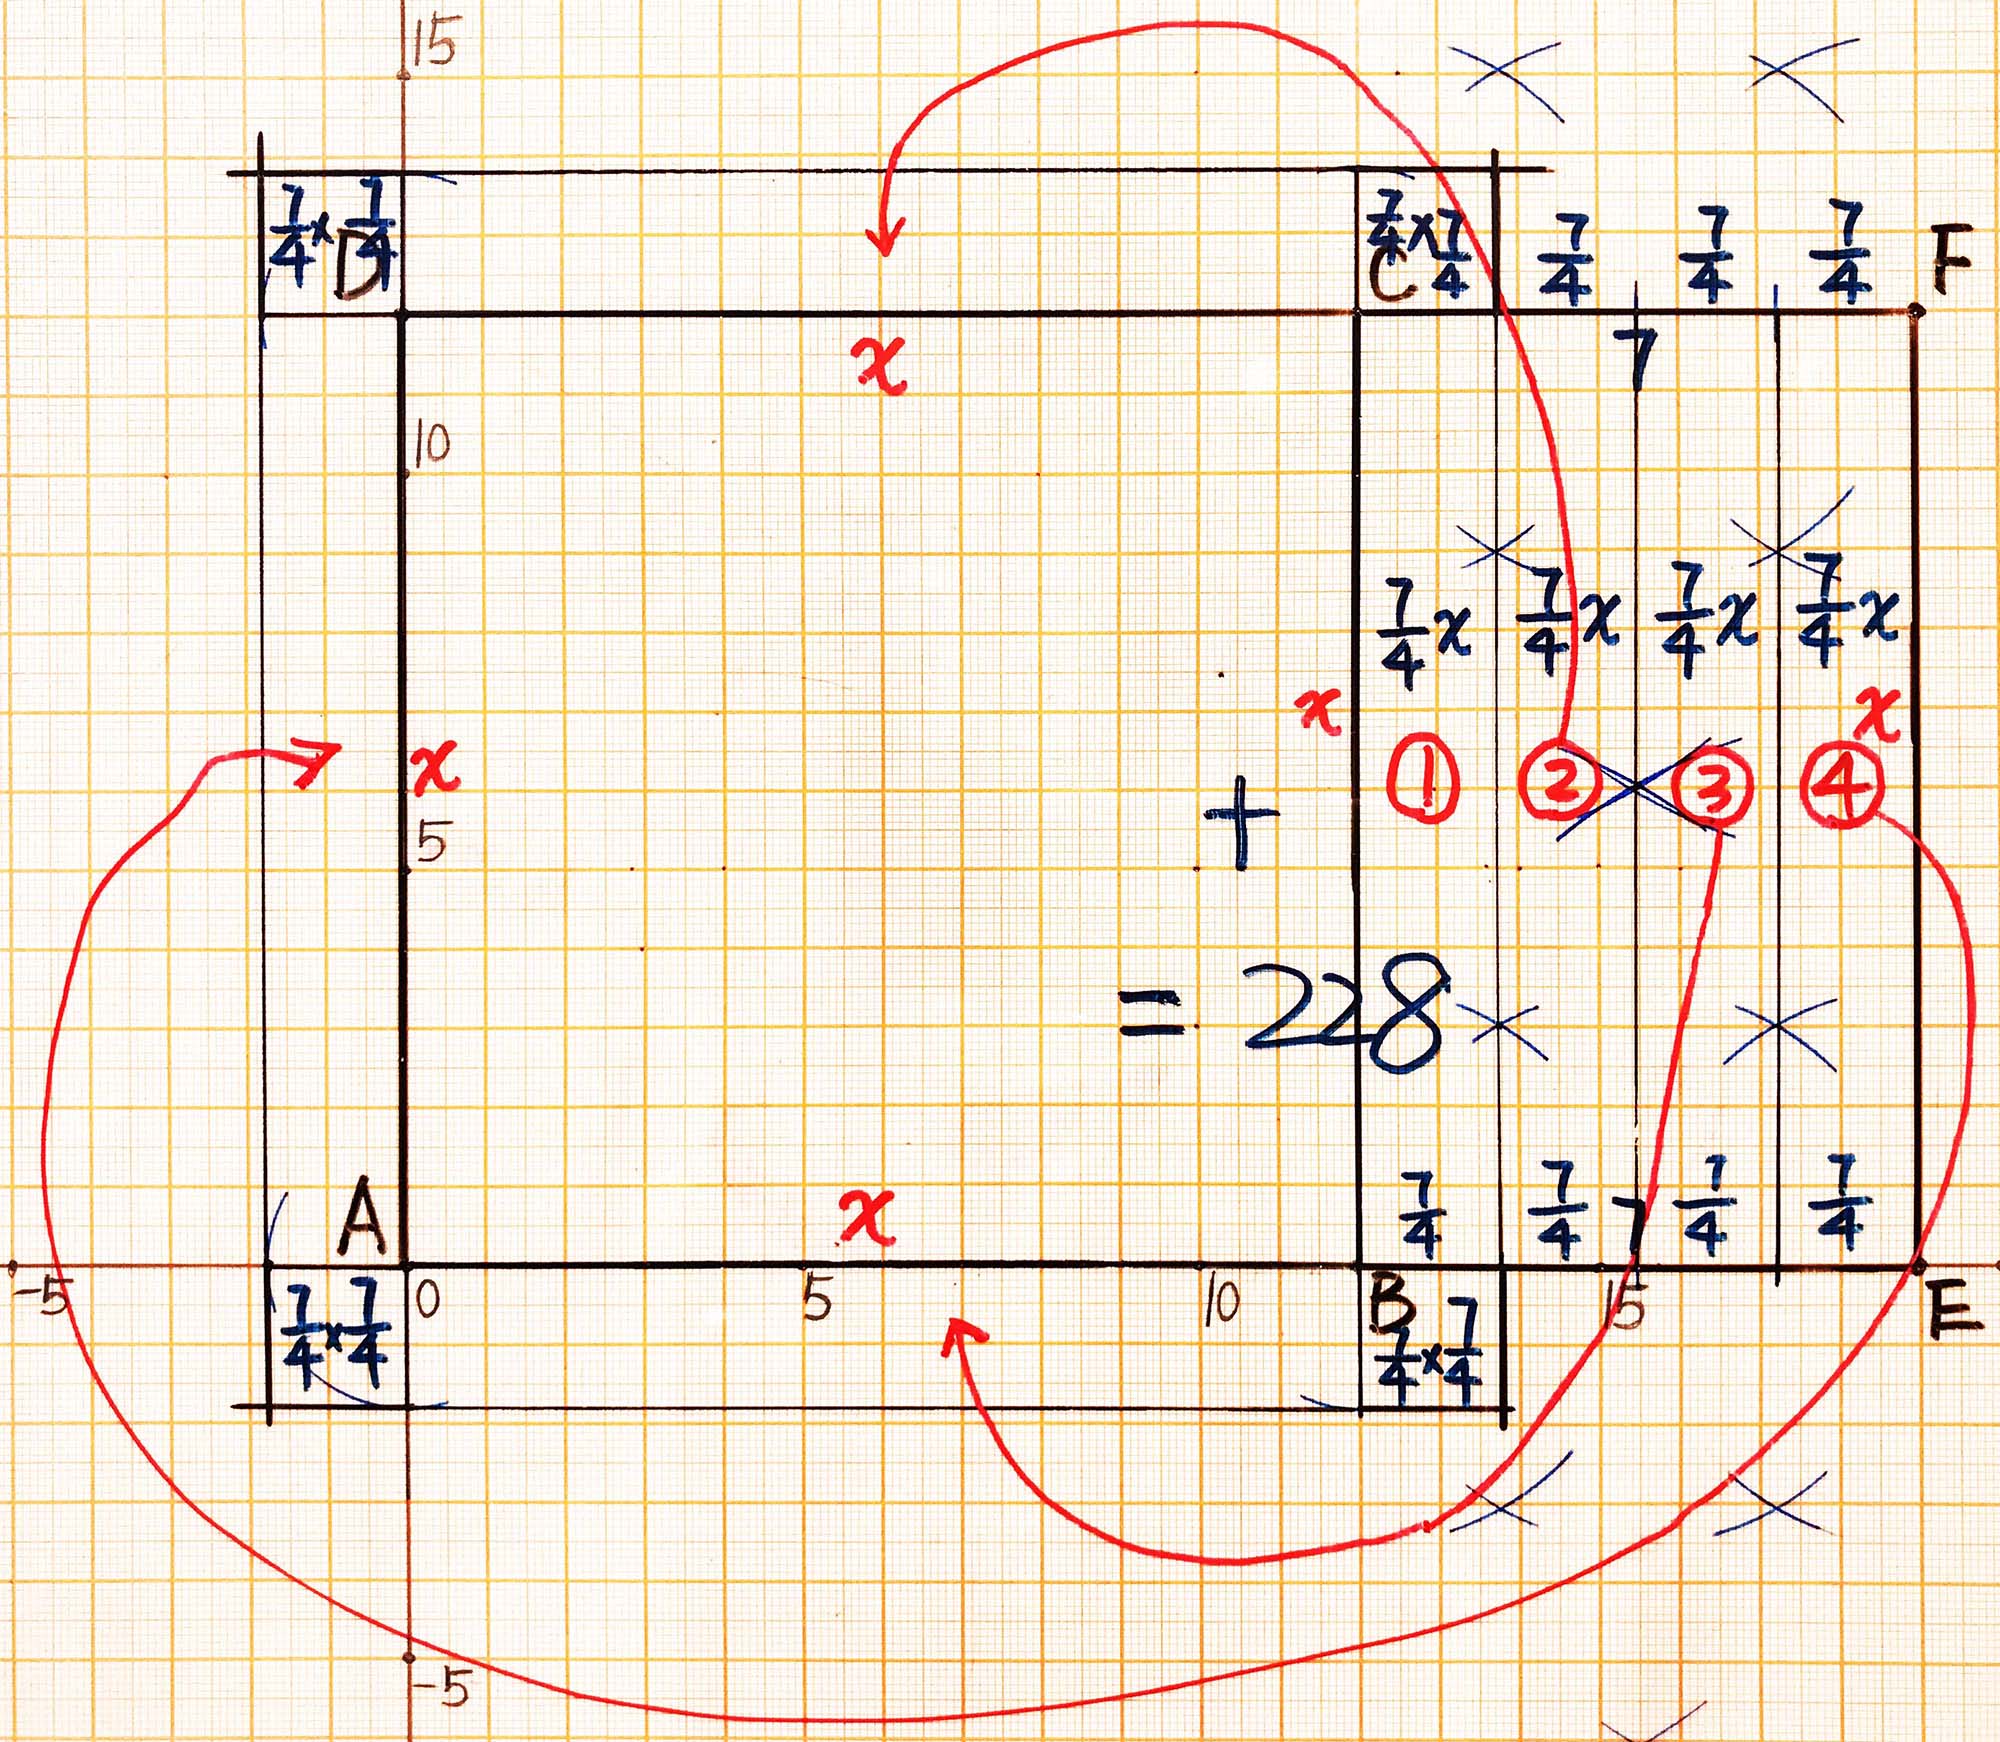 15
7/4 × 7/4
D
7/4 × 7/4
C
7/4 7/4 7/4
F
x
7
10
7/4 x 7/4 x 7/4 x 7/4 x
x
x
x
① ② ③ ④
+
5
= 228
A
x
7/4 7/4 7 7/4 7/4
-5 0 5 10 B 15 E
7/4 × 7/4
7/4 × 7/4
-5